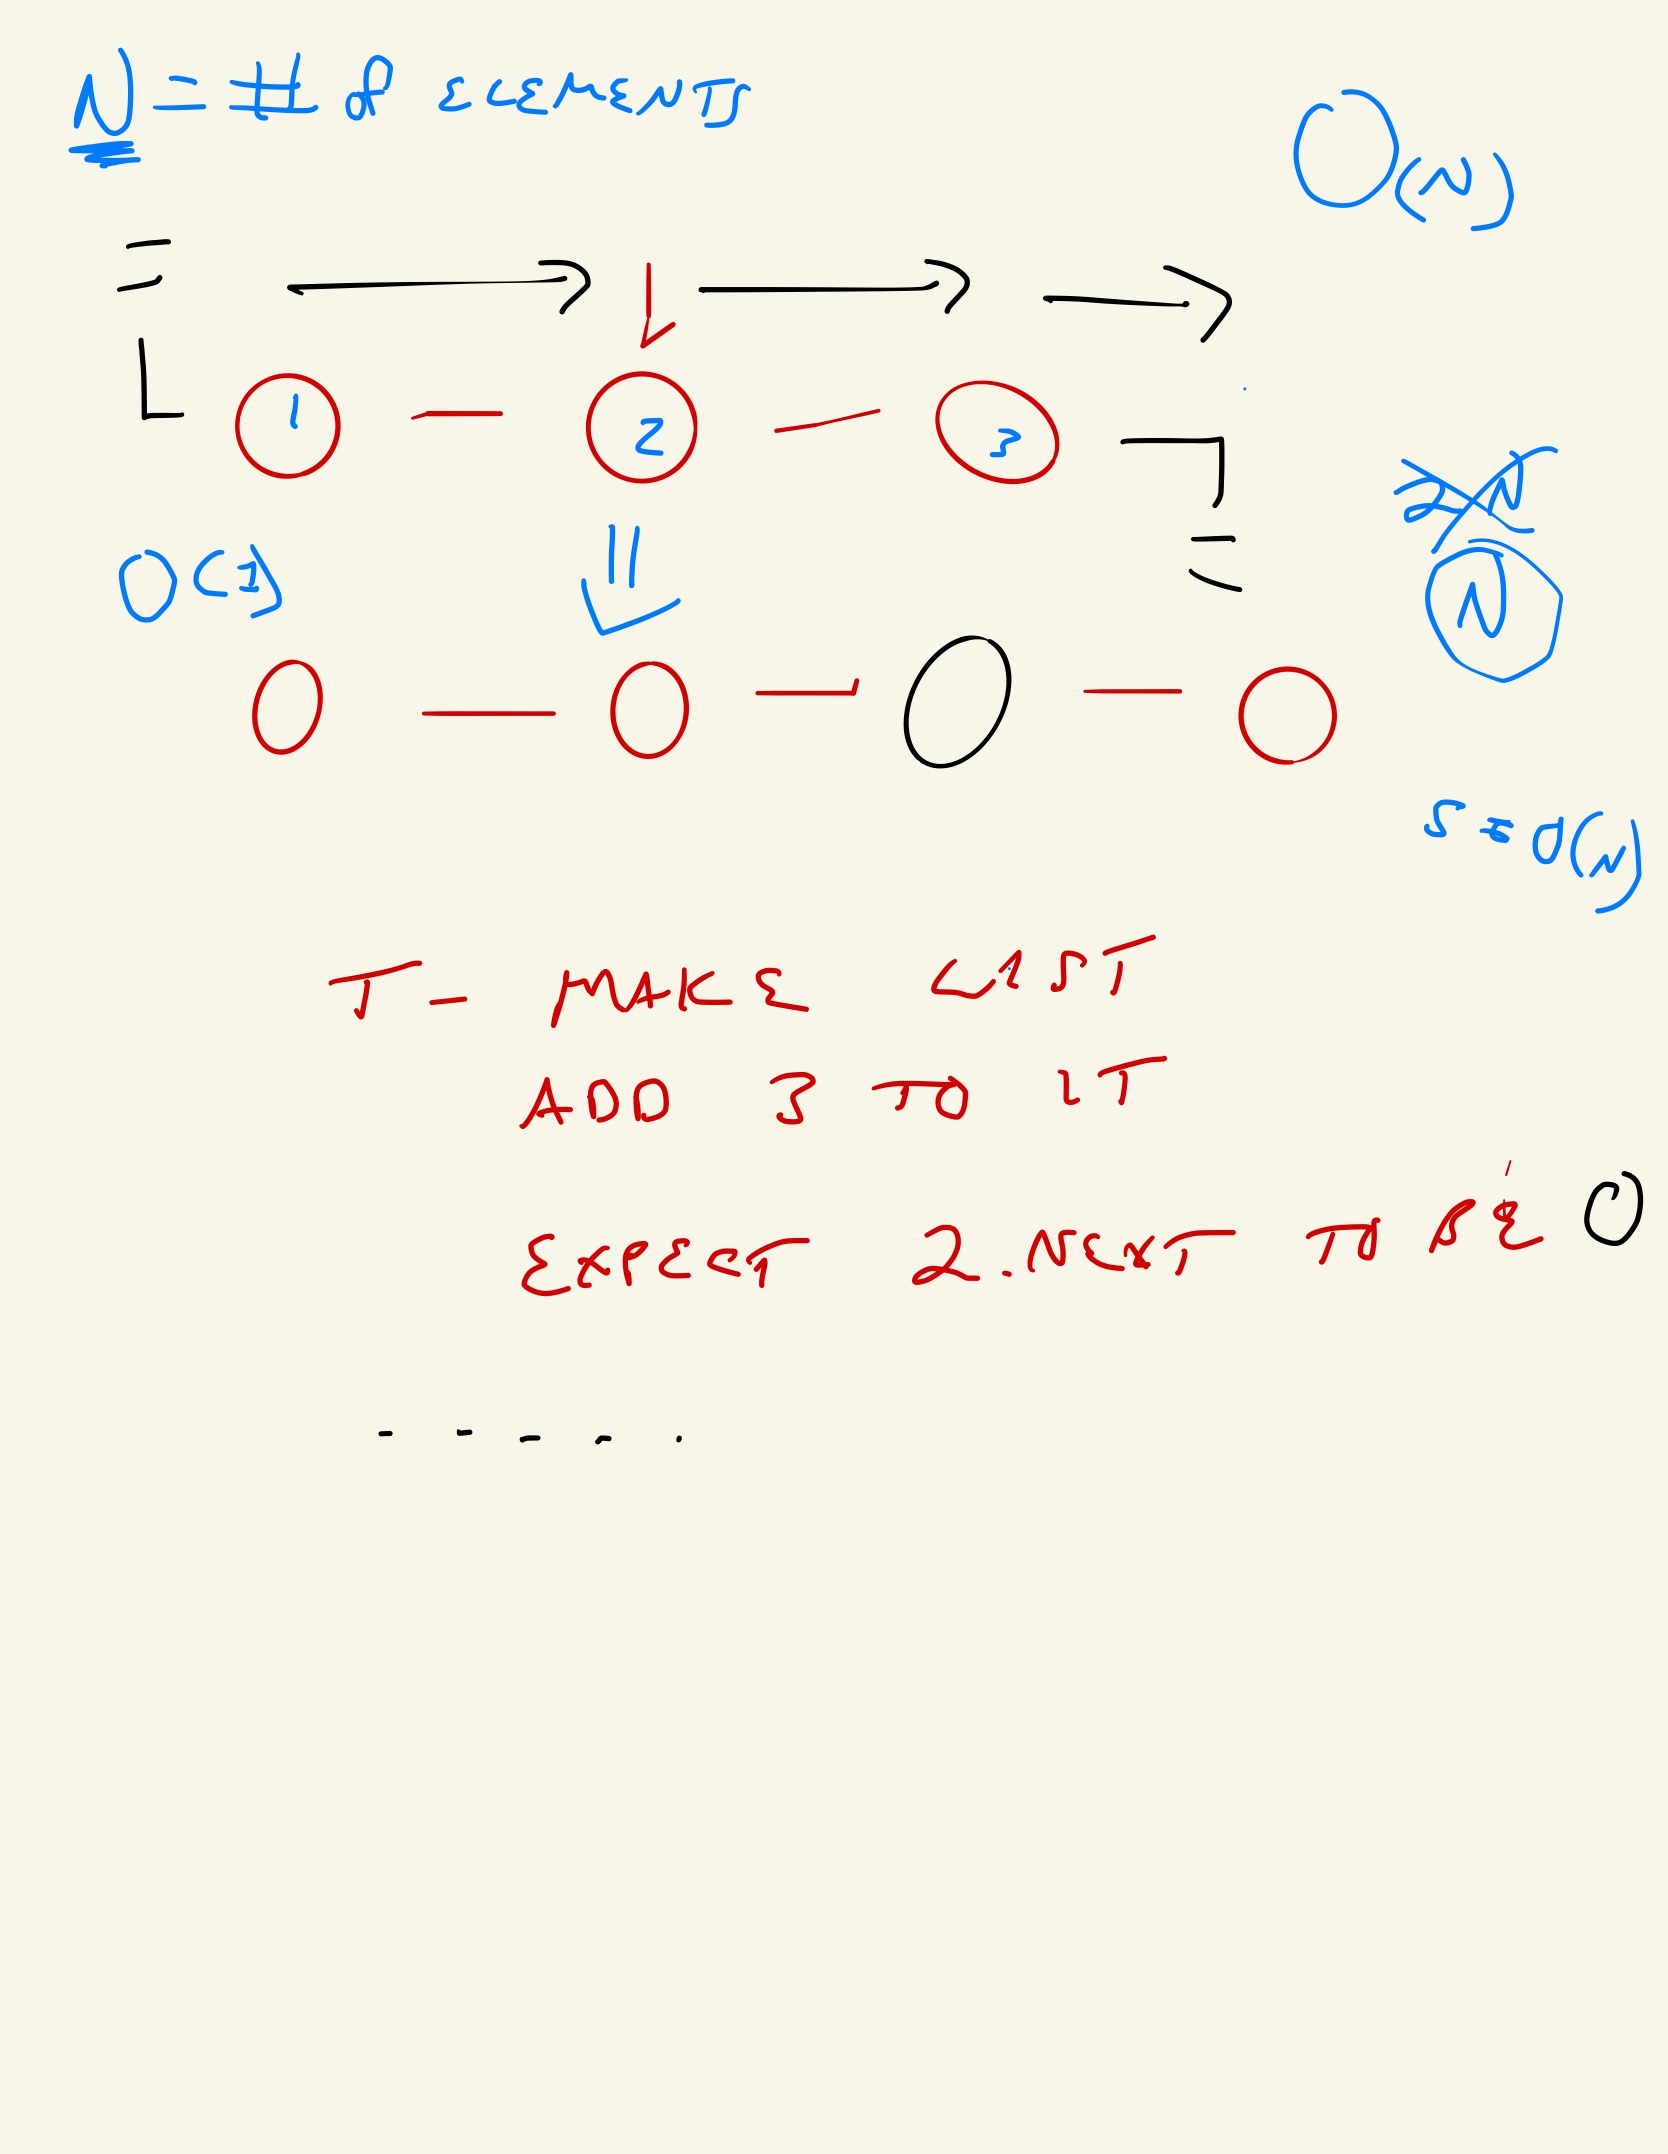 N = # of ELEMENTS
O(N)
1 2 3
2N
N
O(1)
S = O(N)
T - MAKE LIST
ADD 3 TO IT
EXPECT 2.NEXT TO BE O